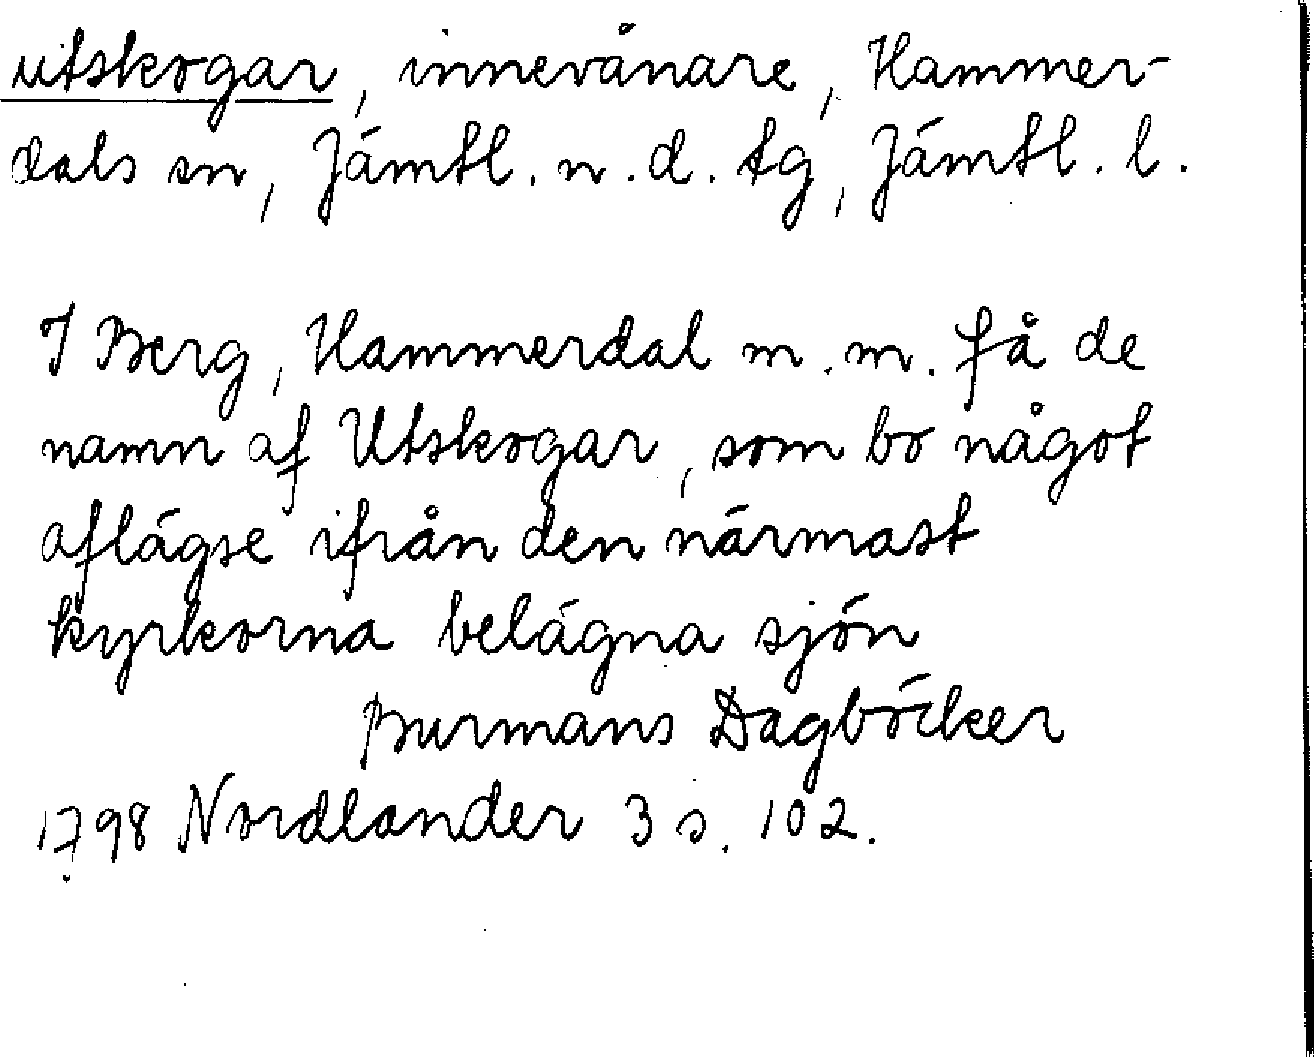 utskogar, innevånare, Hammer-
dals sn, Jämtl. n. d. tg, Jämtl. l.
I Berg, Hammerdal m. m. få de
namn af Utskogar, som bo något
aflägse ifrån den närmast
kyrkorna belägna sjön
Burmans Dagböcker
1798 Nordlander 3 s. 102.